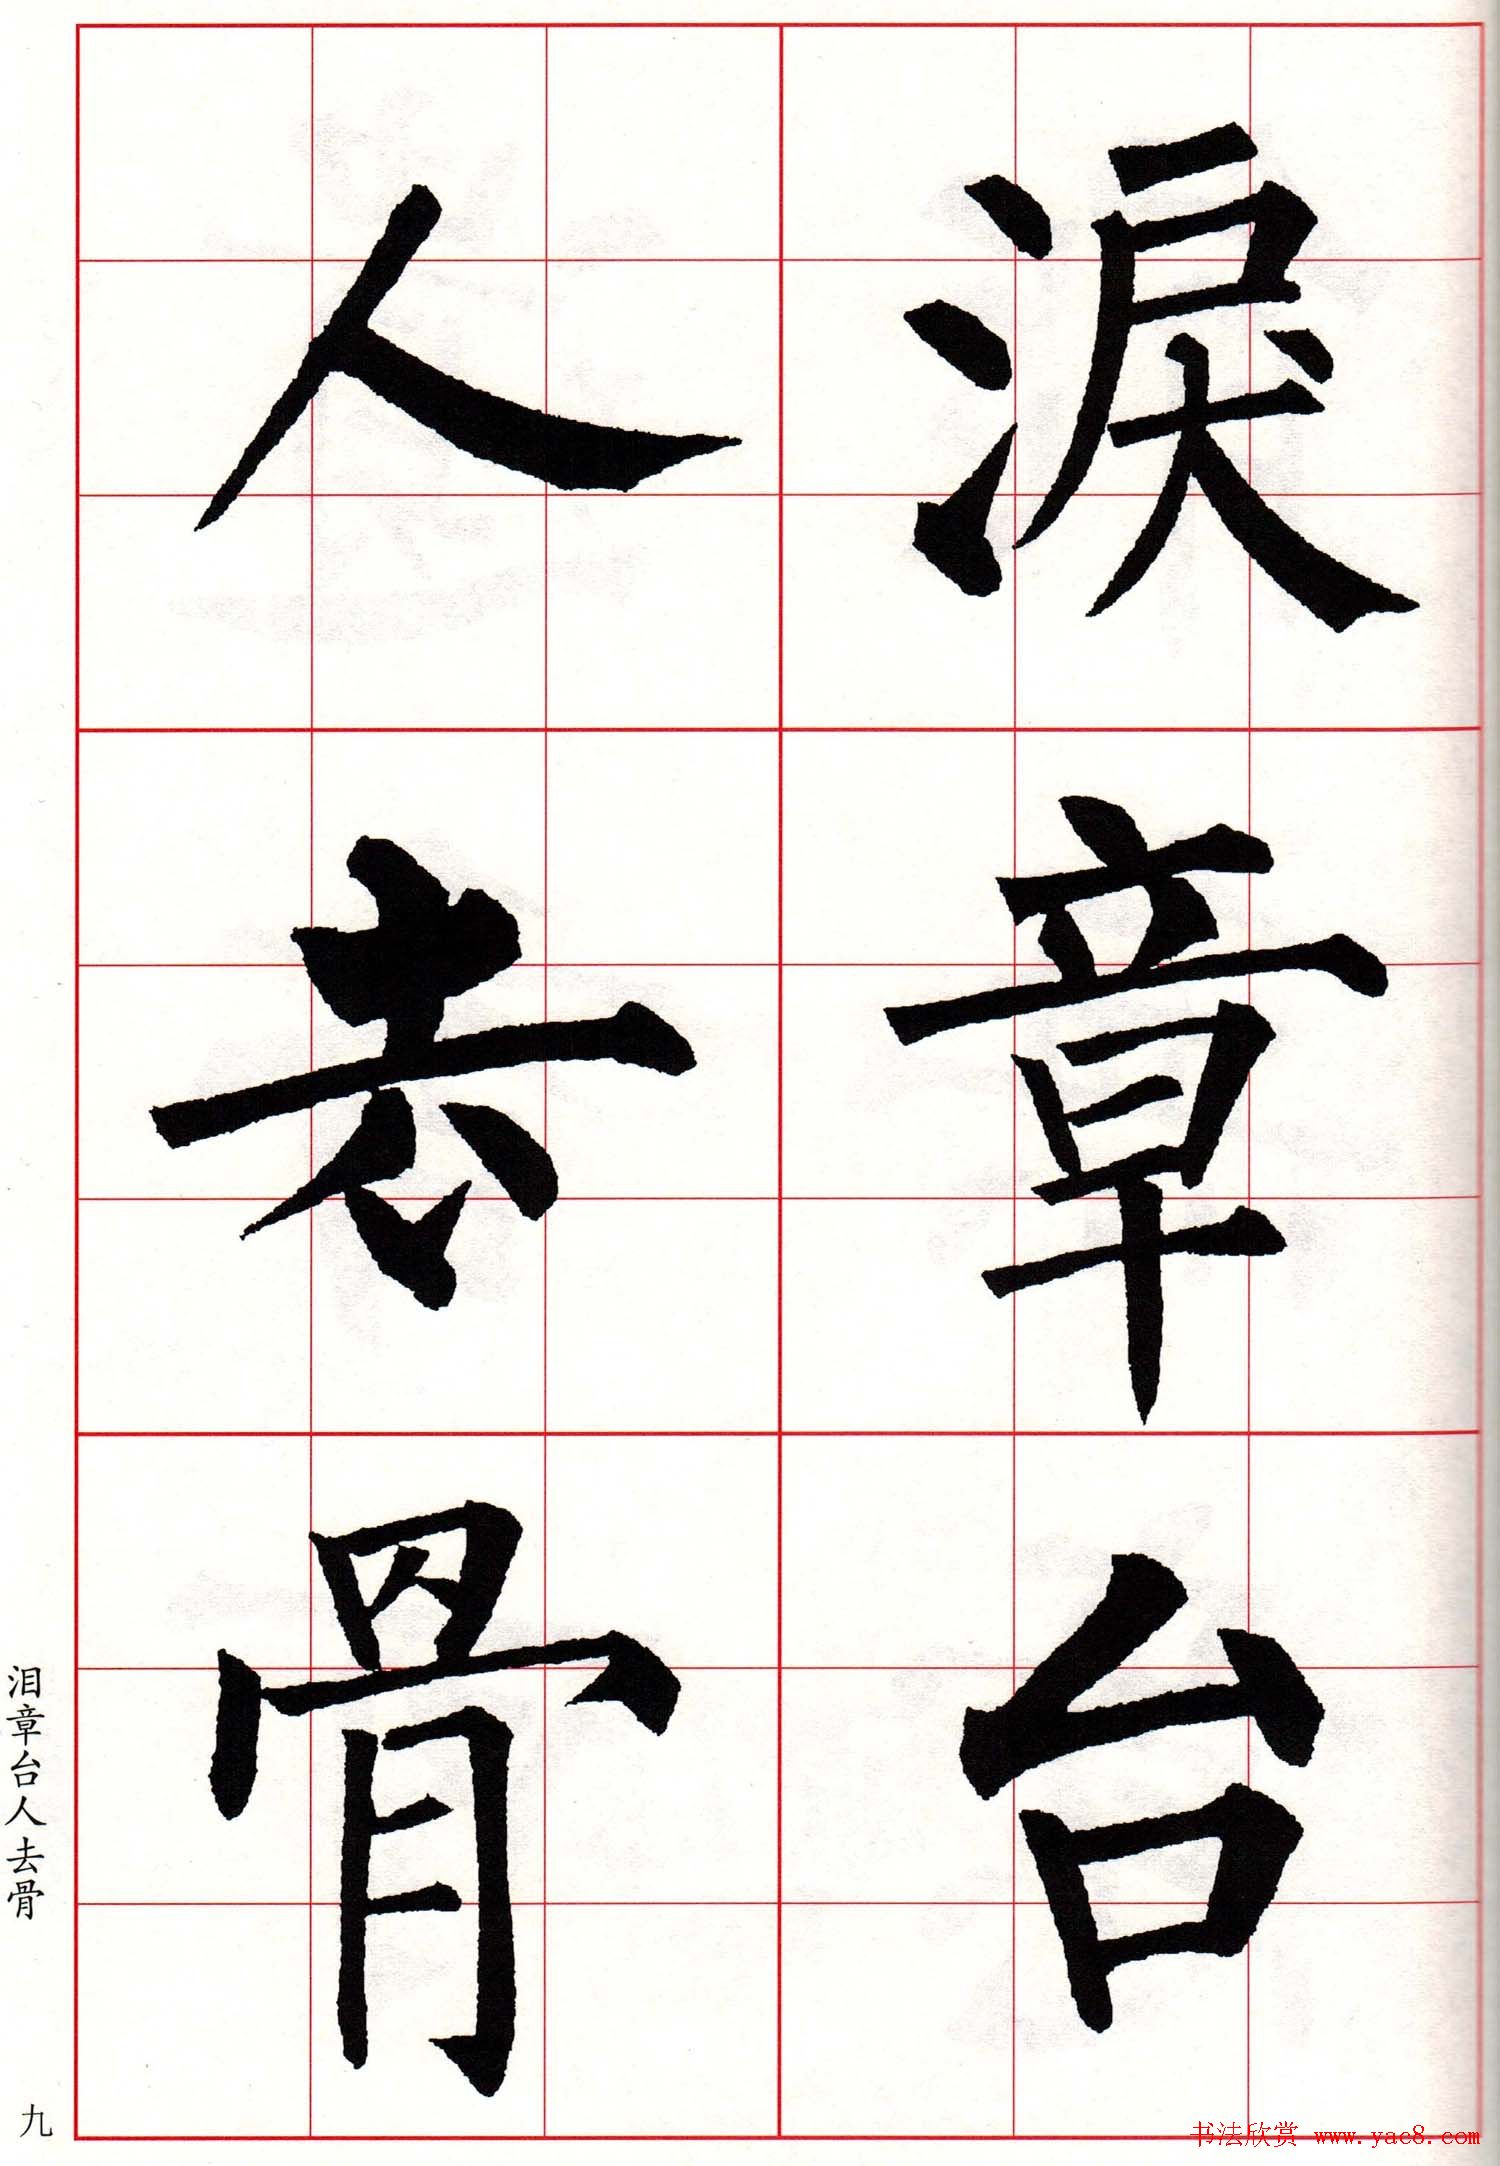 淚章台
人去骨
泪章台人去骨
九
书法欣赏 www.yac8.com